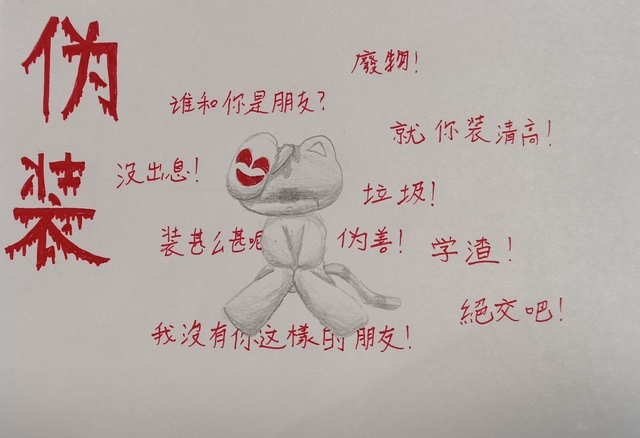 伪装
廢物！
谁和你是朋友？
就你装清高！
没出息！
垃圾！
装甚么甚呢
伪善！
学渣！
絕交吧！
我沒有你这樣的朋友！